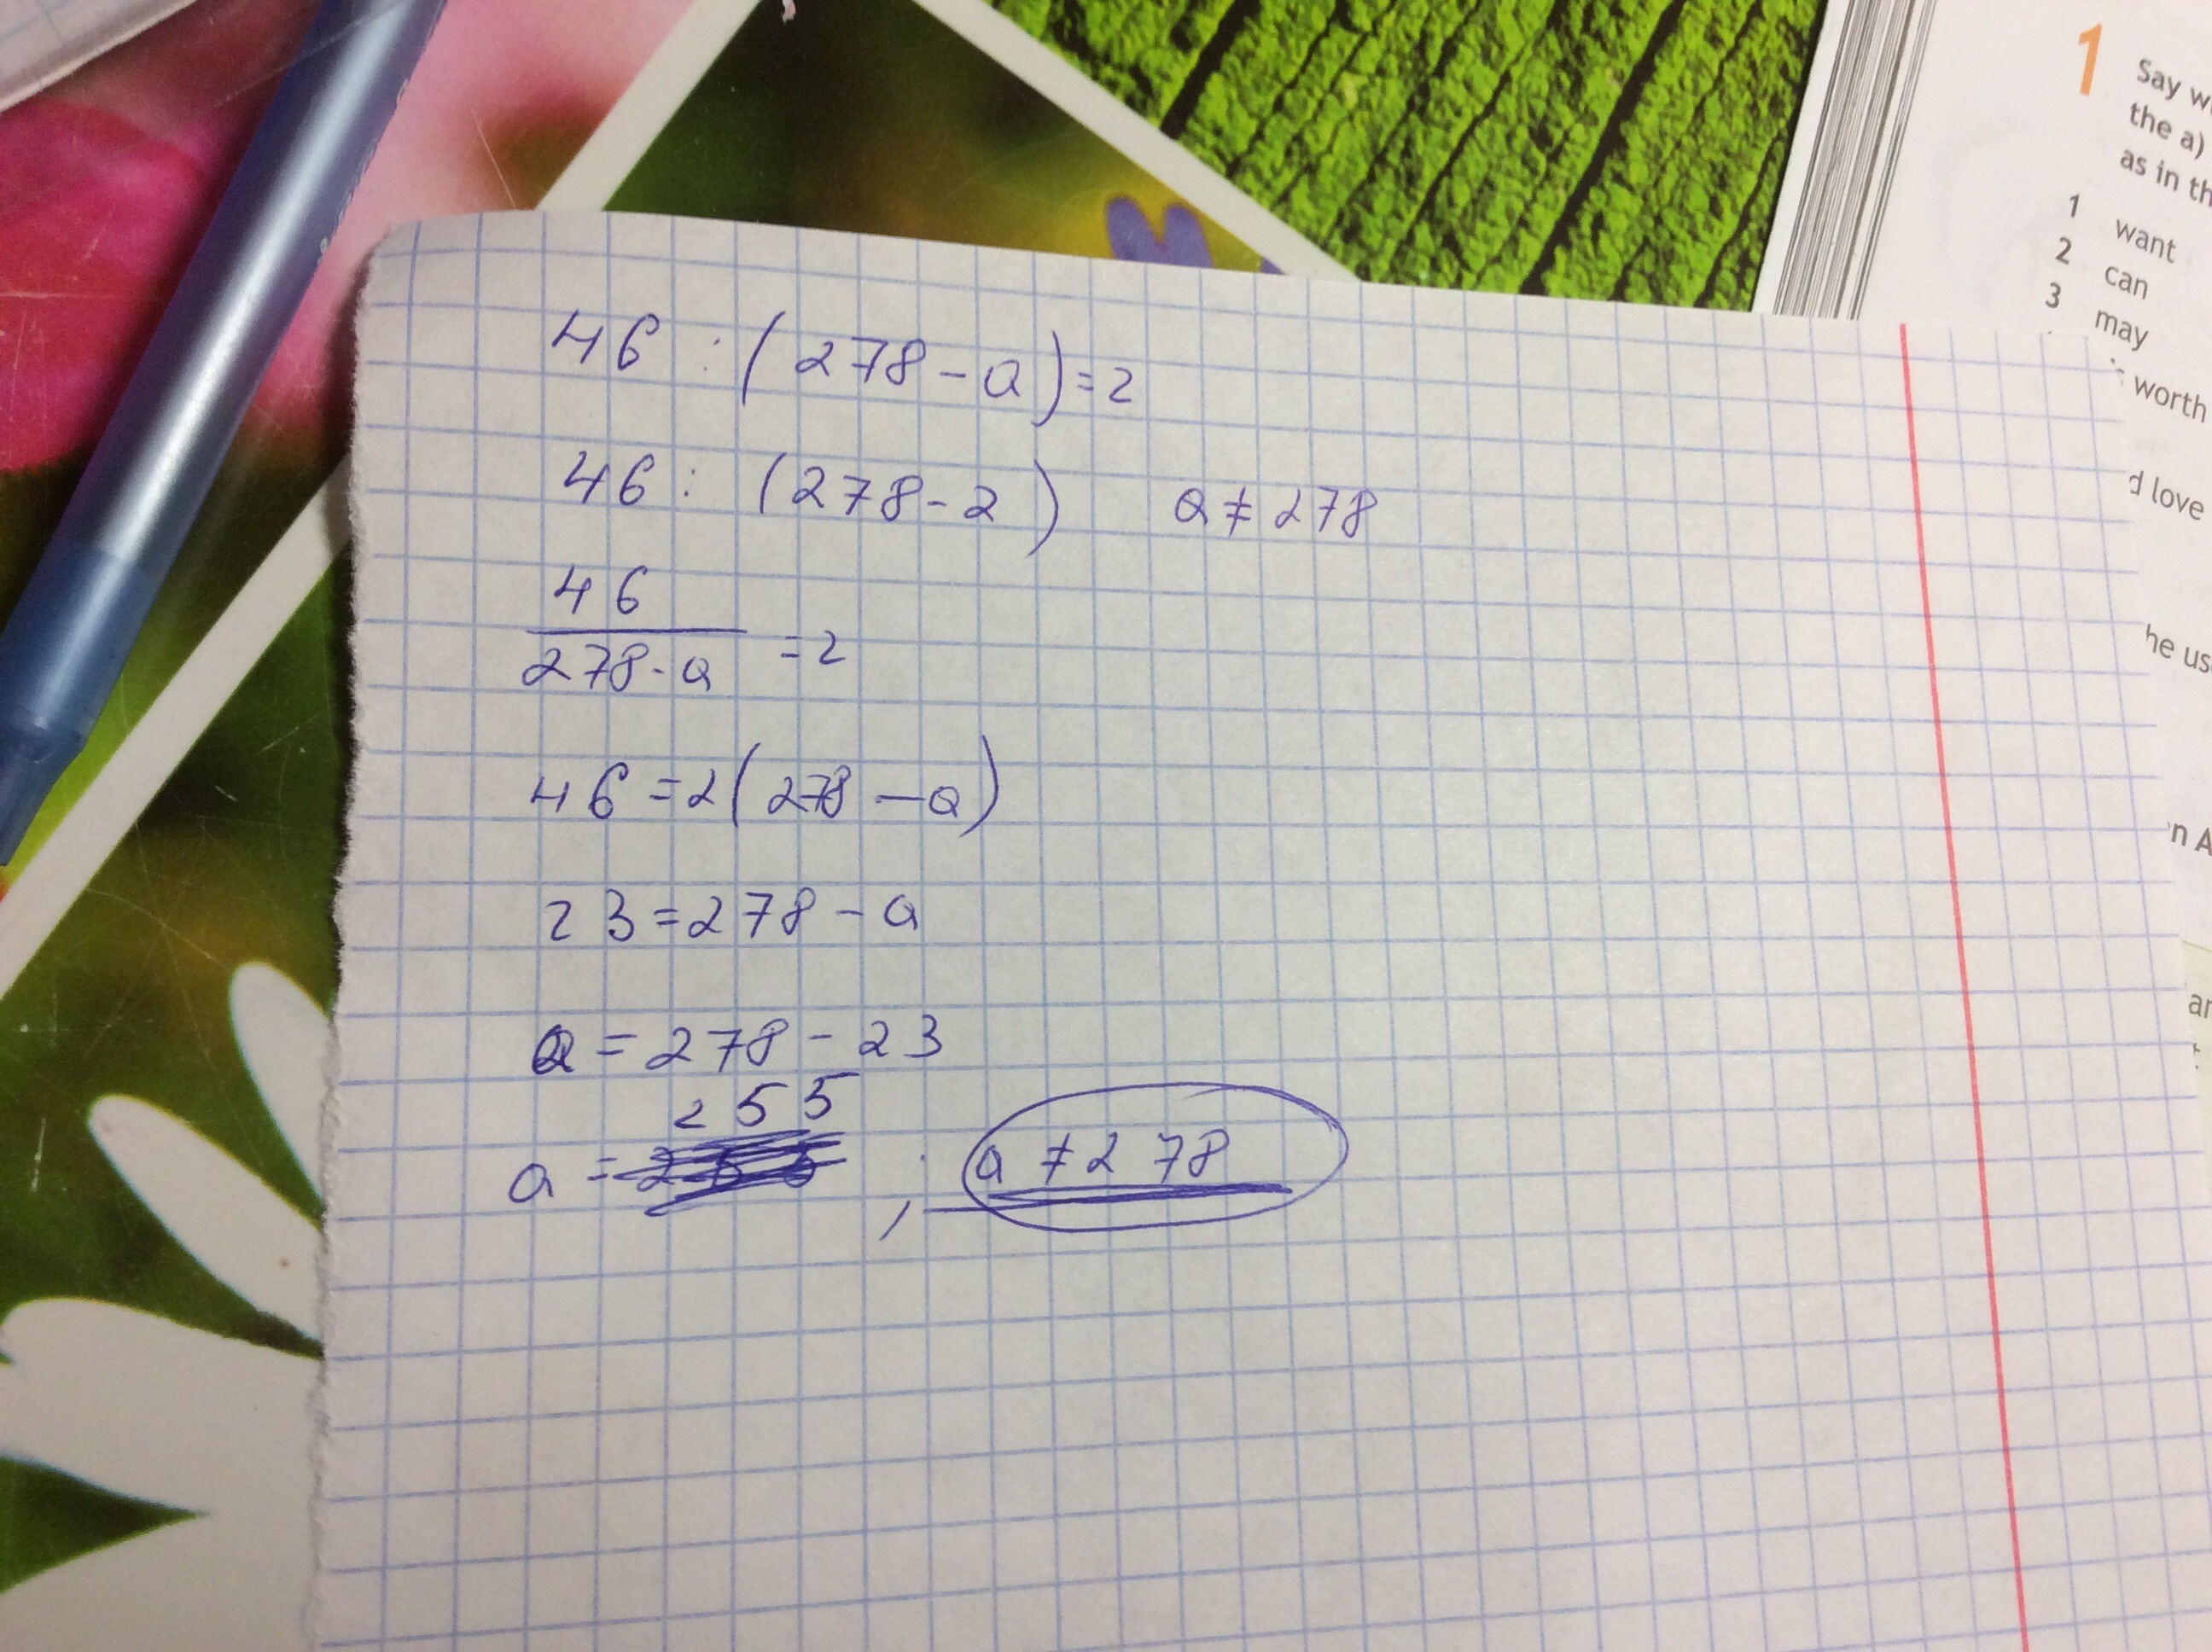 46 : (278 - a) = 2
46 : (278 - 2) a ≠ 278
46
278 - a = 2
46 = 2(278 - a)
23 = 278 - a
a = 278 - 23
255
a = , a ≠ 278
1 Say
the a)
as in
1 want
2 can
3 may
worth
love